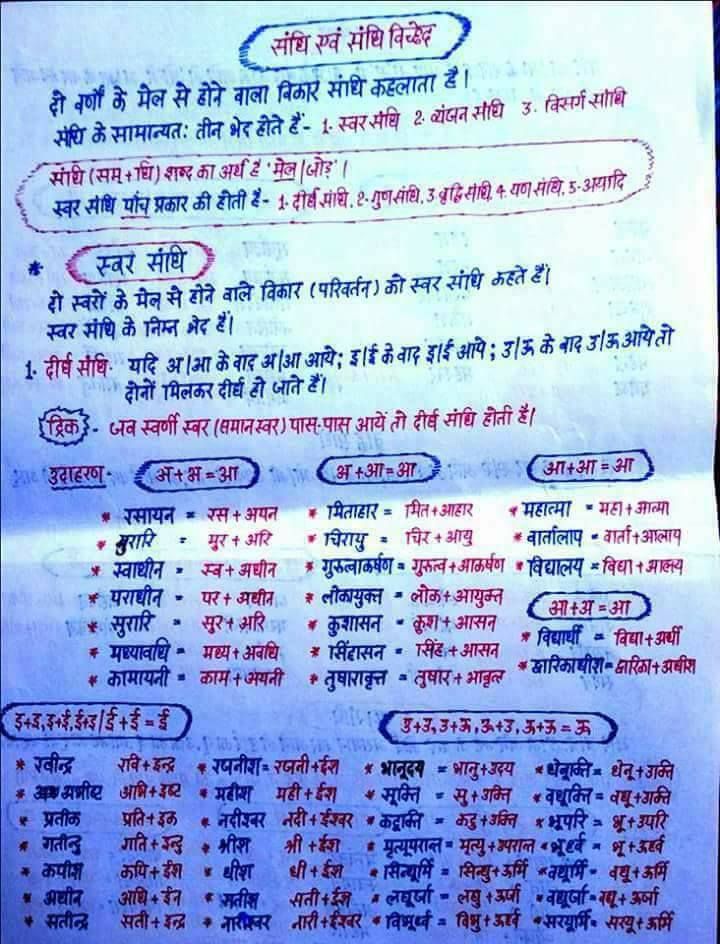 संधि एवं संधि विच्छेद
दो वर्णों के मेल से होने वाला विकार संधि कहलाता है।
संधि के सामान्यतः तीन भेद होते हैं- 1. स्वर संधि 2. व्यंजन संधि 3. विसर्ग संधि
संधि (सम्+धि) शब्द का अर्थ है 'मेल/जोड़'।
स्वर संधि पाँच प्रकार की होती है- 1. दीर्घ संधि, 2. गुण संधि, 3 वृद्धि संधि, 4. यण संधि, 5. अयादि
* स्वर संधि
दो स्वरों के मेल से होने वाले विकार (परिवर्तन) को स्वर संधि कहते हैं।
स्वर संधि के निम्न भेद हैं।
1. दीर्घ संधि- यदि अ/आ के बाद अ/आ आये; इ/ई के बाद इ/ई आये; उ/ऊ के बाद उ/ऊ आये तो
दोनों मिलकर दीर्घ हो जाते हैं।
ट्रिक - जब स्वर्णी स्वर (समान स्वर) पास-पास आयें तो दीर्घ संधि होती है।
उदाहरण- अ+अ=आ अ+आ=आ आ+आ=आ
* रसायन = रस+अयन * मिताहार = मित+आहार * महात्मा = महा+आत्मा
* मुरारि = मुर+अरि * चिरायु = चिर+आयु * वार्तालाप = वार्ता+आलाप
* स्वाधीन = स्व+अधीन * गुरुत्वाकर्षण = गुरुत्व+आकर्षण * विद्यालय = विद्या+आलय
* पराधीन = पर+अधीन * लोकायुक्त = लोक+आयुक्त आ+अ=आ
* सुरारि = सुर+अरि * कुशासन = कुश+आसन * विद्यार्थी = विद्या+अर्थी
* मध्यावधि = मध्य+अवधि * सिंहासन = सिंह+आसन * द्वारिकाधीश = द्वारिका+अधीश
* कामायनी = काम+अयनी * तुषारावृत्त = तुषार+आवृत्त
इ+इ, इ+ई, ई+इ/ई+ई=ई उ+उ, उ+ऊ, ऊ+उ, ऊ+ऊ=ऊ
* रवीन्द्र रवि+इन्द्र * रजनीश = रजनी+ईश * भानूदय = भानु+उदय * धेनूक्ति = धेनू+उक्ति
* अभीष्ट अभि+इष्ट * महीश मही+ईश * सूक्ति = सु+उक्ति * वधूक्ति = वधू+उक्ति
* प्रतीक प्रति+इक * नदीश्वर नदी+ईश्वर * कटूक्ति = कटु+उक्ति * भूपरि = भू+उपरि
* गतीन्दु गति+इन्दु * श्रीश श्री+ईश * मृत्यूपरान्त = मृत्यु+उपरान्त * भूर्ध्व = भू+ऊर्ध्व
* कपीश कपि+ईश * धीश धी+ईश * सिन्धूर्मि = सिन्धु+ऊर्मि * वधूर्मि = वधू+ऊर्मि
* अधीन अधि+ईन * सतीश सती+ईश * लघूर्जा = लघु+ऊर्जा * वधूर्जा = वधू+ऊर्जा
* सतीन्द्र सती+इन्द्र * नारीश्वर नारी+ईश्वर * विभूर्ध्व = विभु+ऊर्ध्व * सरयूर्मि = सरयू+ऊर्मि